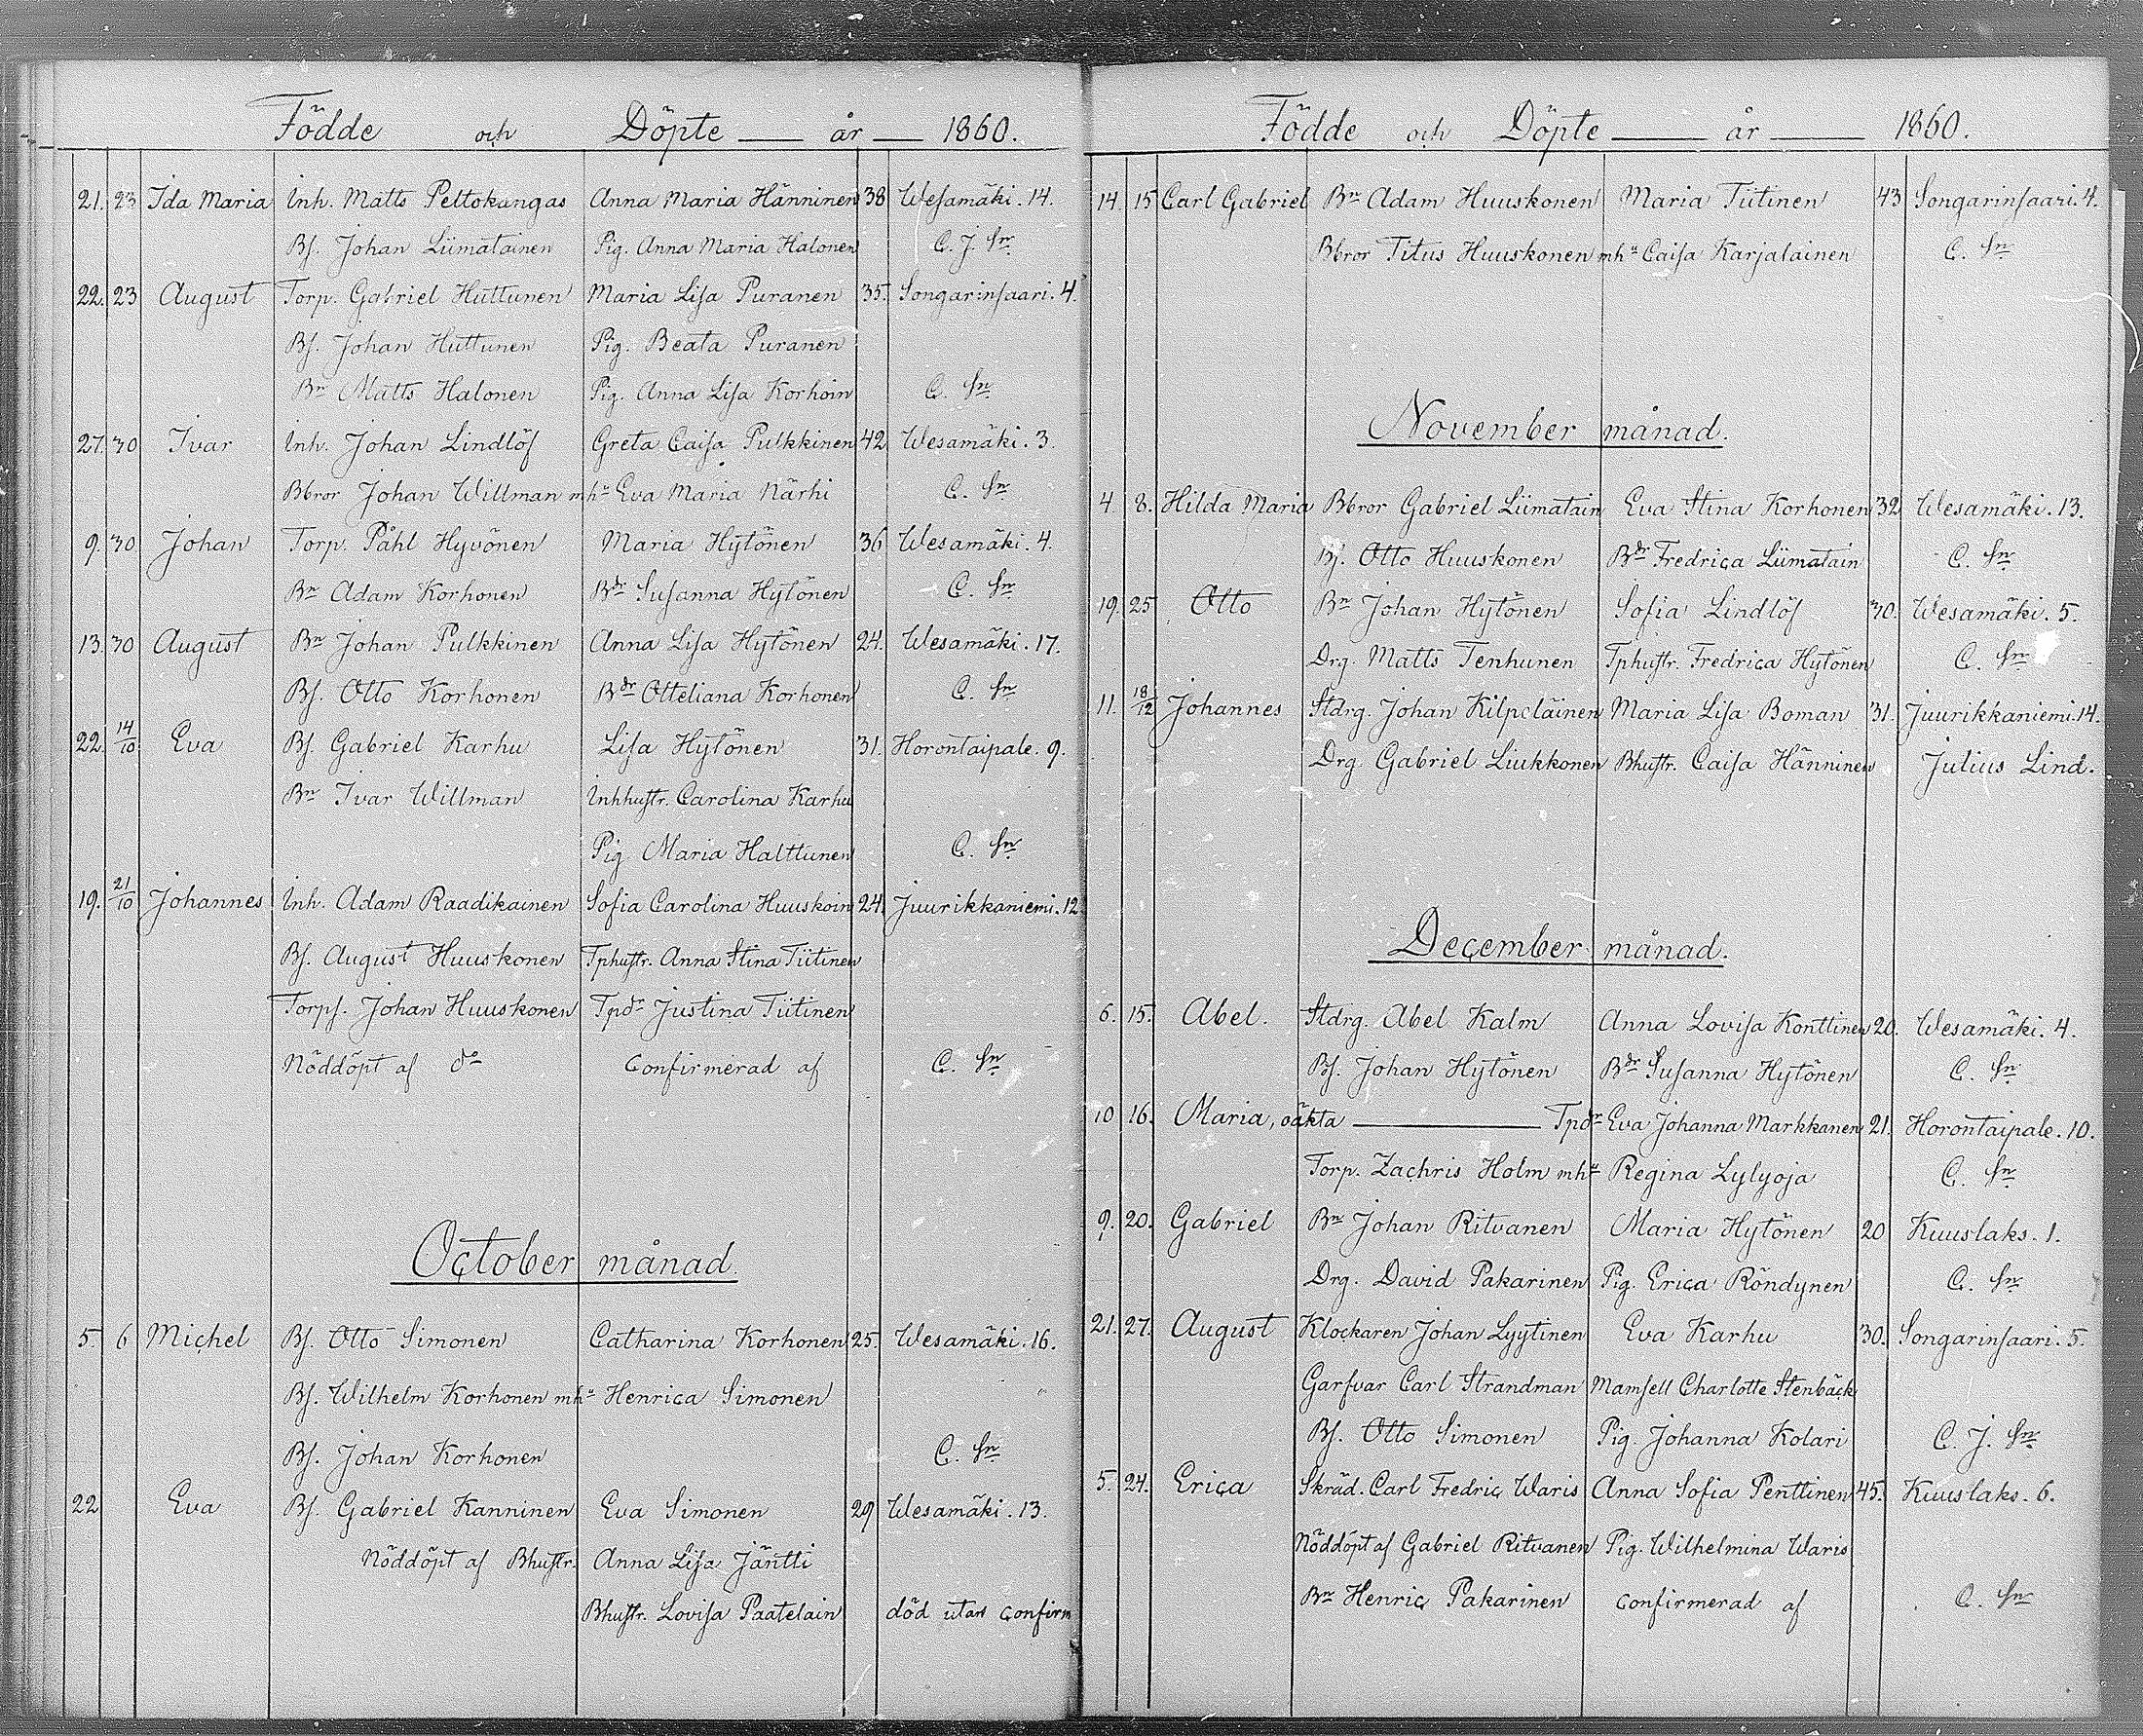 Födde och Döpte — år — 1860.
21. 23 Ida Maria Inh. Matts Peltokangas Anna Maria Hänninen 38 Wesamäki. 14.
Bs. Johan Liimatainen Pig. Anna Maria Halonen C. J. Sn
22. 23 August Torp. Gabriel Huttunen Maria Lisa Puranen 35. Songarinsaari. 4.
Bs. Johan Huttunen Pig. Beata Puranen
Bn Matts Halonen Pig. Anna Lisa Korhoin C. Sn
27. 30 Ivar Inh. Johan Lindlöf Greta Caisa Pulkkinen 42 Wesamäki. 3.
Bbror Johan Willman mhu Eva Maria Närhi C. Sn
9. 30 Johan Torp. Påhl Hyvönen Maria Hytönen 36 Wesamäki. 4.
Bn Adam Korhonen Bdr Susanna Hytönen C. Sn
13. 30 August Bn Johan Pulkkinen Anna Lisa Hytönen 24. Wesamäki. 17.
Bs. Otto Korhonen Bdr Otteliana Korhonen C. Sn
22. 14/10 Eva Bs. Gabriel Karhu Lisa Hytönen 31. Horontaipale. 9.
Bn Ivar Willman Inhhustr. Carolina Karhu
Pig Maria Halttunen C. Sn
19. 21/10 Johannes Inh. Adam Raadikainen Sofia Carolina Huuskoin 24. Juurikkaniemi. 12
Bs. August Huuskonen Tphustr. Anna Stina Tiitinen
Torps. Johan Huuskonen Tpdr Justina Tiitinen
Nöddöpt af do Confirmerad af C. Sn
October månad.
5. 6 Michel Bs. Otto Simonen Catharina Korhonen 25. Wesamäki. 16.
Bs. Wilhelm Korhonen mhu Henrica Simonen
Bs. Johan Korhonen C. Sn
22 Eva Bs. Gabriel Kanninen Eva Simonen 29 Wesamäki. 13.
Nöddöpt af Bhustr. Anna Lisa Jäntti
Bhustr. Lovisa Paatelain död utan confirm
Födde och Döpte — år — 1860.
14. 15 Carl Gabriel Bn Adam Huuskonen Maria Tiitinen 43 Songarinsaari. 4.
Bbror Titus Huuskonen mhu Caisa Karjalainen C. Sn
November månad.
4. 8. Hilda Maria Bbror Gabriel Liimatain Eva Stina Korhonen 32 Wesamäki. 13.
Bs. Otto Huuskonen Bdr Fredrica Liimatain C. Sn
19. 25 Otto Bn Johan Hytönen Sofia Lindlöf 30. Wesamäki. 5.
Drg. Matts Tenhunen Tphustr. Fredrica Hytönen C. Sn
11. 18/12 Johannes Stdrg. Johan Kilpeläinen Maria Lisa Boman 31. Juurikkaniemi. 14.
Drg. Gabriel Liukkonen Bhustr. Caisa Hänninen Julius Lind.
December månad.
6. 15. Abel. Stdrg. Abel Kalm Anna Lovisa Konttinen 20. Wesamäki. 4.
Bs. Johan Hytönen Bdr Susanna Hytönen C. Sn
10 16. Maria, oäkta — Tpdr Eva Johanna Markkanen 21. Horontaipale. 10.
Torp. Zachris Holm mhu Regina Lylyoja C. Sn
9. 20. Gabriel Bn Johan Ritvanen Maria Hytönen 20 Kuuslaks. 1.
Drg. David Pakarinen Pig. Erica Röndynen C. Sn
21. 27. August Klockaren Johan Lyytinen Eva Karhu 30. Songarinsaari. 5.
Garfvar Carl Strandman Mamsell Charlotte Stenbäck
Bs. Otto Simonen Pig. Johanna Kolari C. J. Sn
5. 24. Erica Skräd. Carl Fredric Waris Anna Sofia Penttinen 45. Kuuslaks. 6.
Nöddöpt af Gabriel Ritvanen Pig. Wilhelmina Waris
Bn Henric Pakarinen confirmerad af C. Sn